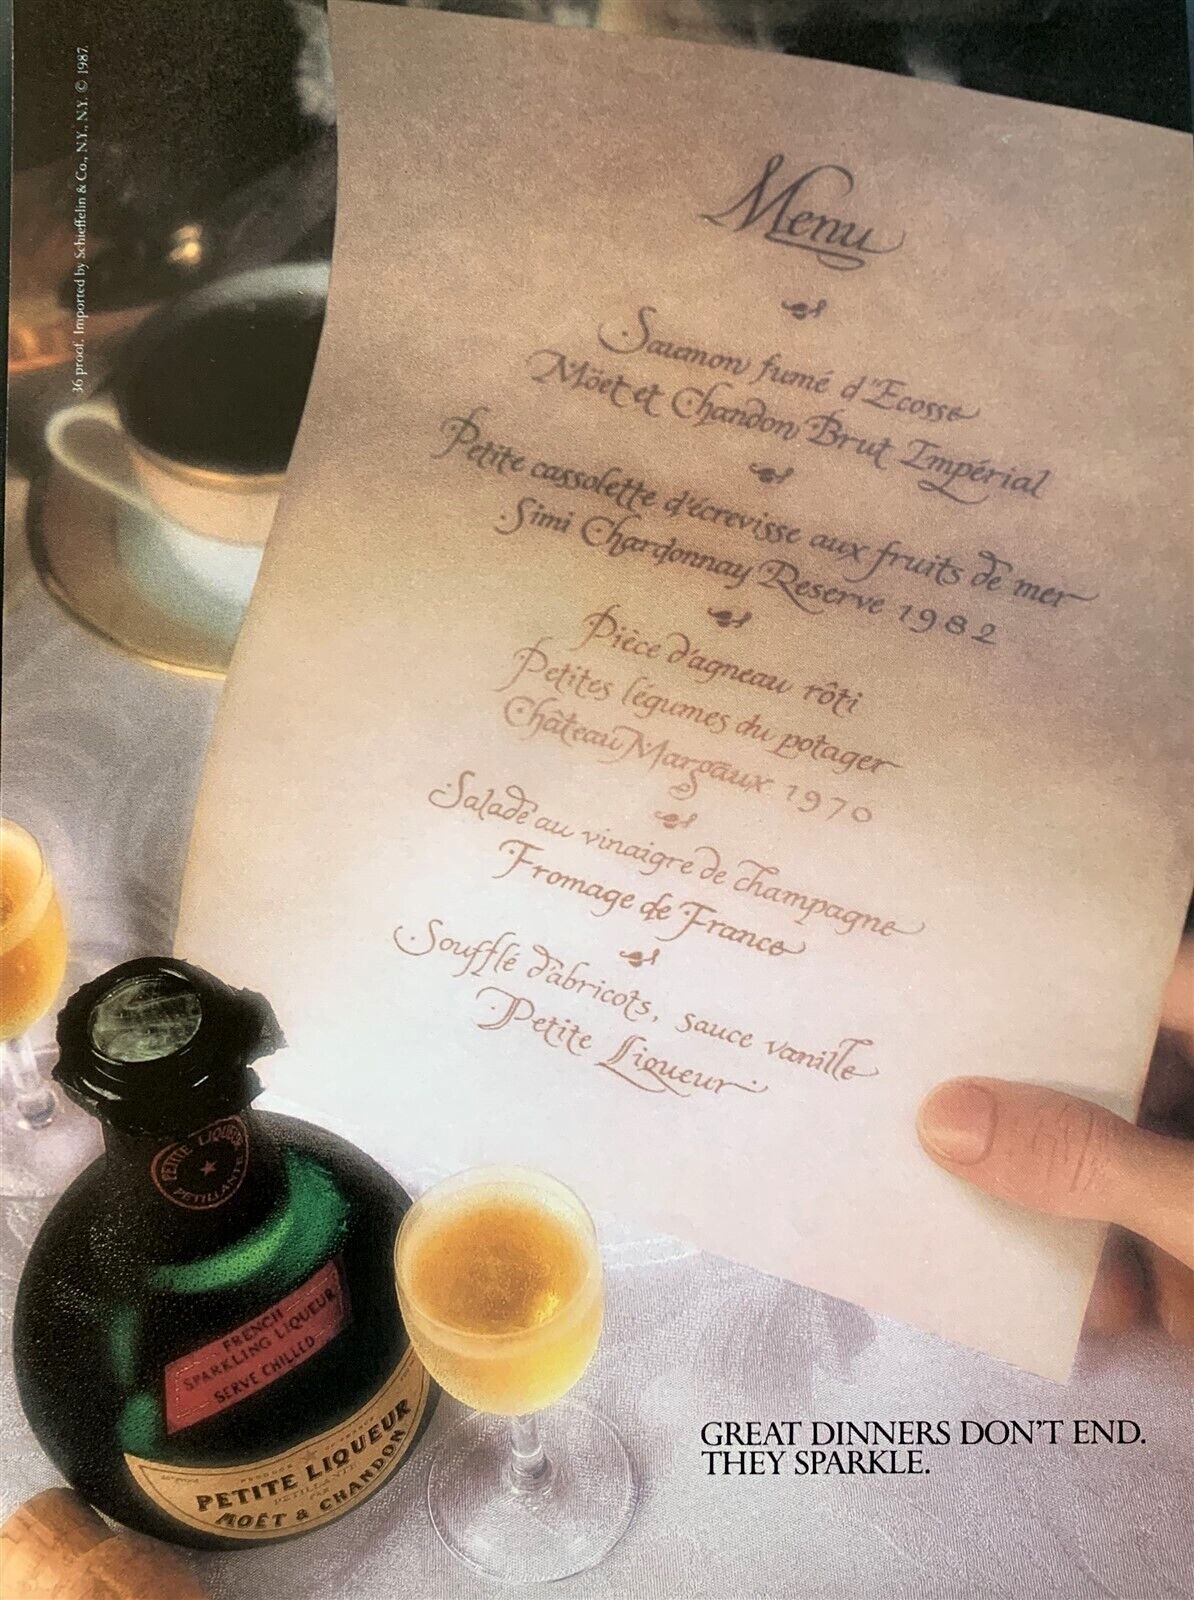 36 proof. Imported by Schieffelin & Co., N.Y., N.Y. © 1987.
Menu
Saumon fumé d'Ecosse
Möet et Chandon Brut Impérial
Petite cassolette d'écrevisse aux fruits de mer
Simi Chardonnay Reserve 1982
Pièce d'agneau rôti
Petites légumes du potager
Château Margaux 1970
Salade au vinaigre de champagne
Fromage de France
Soufflé d'abricots, sauce vanille
Petite Liqueur
PETITE LIQUEUR
PETILLANTE
FRENCH
SPARKLING LIQUEUR
SERVE CHILLED
PETITE LIQUEUR
PETILLANTE
PAR
MOËT & CHANDON
GREAT DINNERS DON'T END.
THEY SPARKLE.